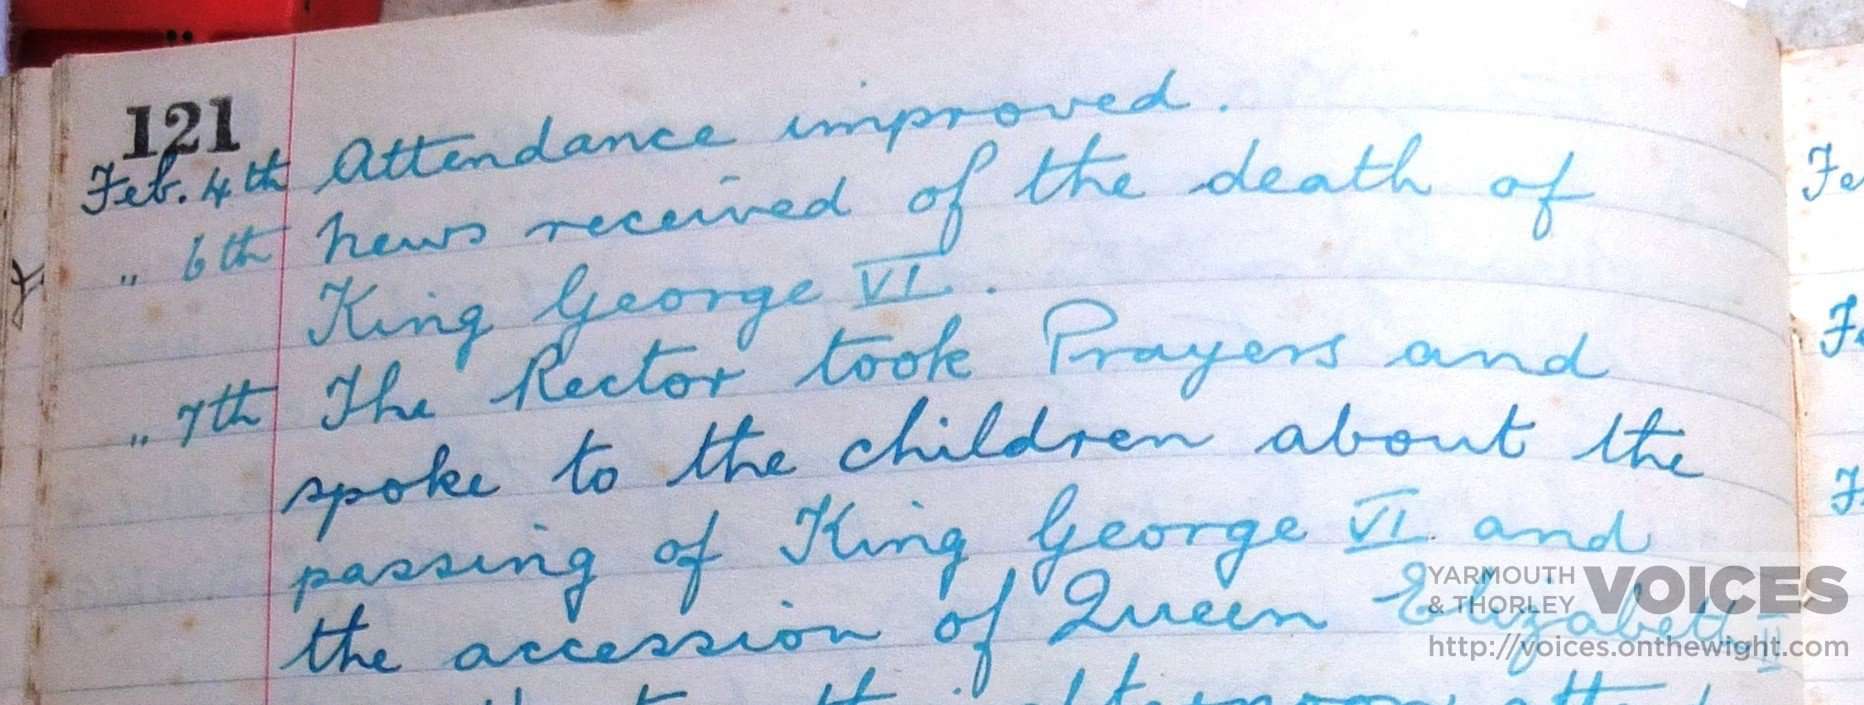 121
Feb. 4th Attendance improved.
„ 6th News received of the death of
King George VI.
„ 7th The Rector took Prayers and
spoke to the children about the
passing of King George VI. and
the accession of Queen Elizabeth II
afternoon
Fe
F
YARMOUTH & THORLEY VOICES
http://voices.onthewight.com